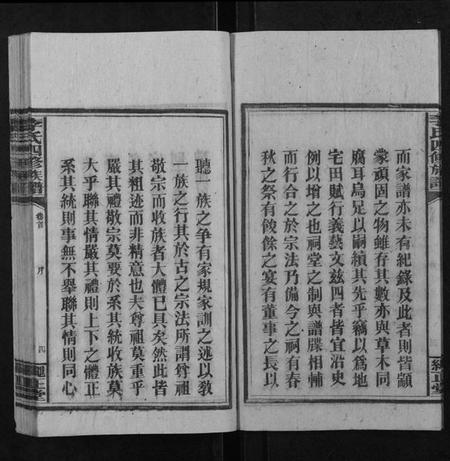 而家譜亦未有紀錄及此者則皆顓
蒙頑固之物雖存其數亦與草木同
腐耳烏足以嗣續其先乎竊以爲地
宅田賦行義藝文茲四者皆宜沿史
例以增之也祠堂之制與譜牒相輔
而行合之於宗法乃備今之祠有春
秋之祭有餕餘之宴有董事之長以
李氏四修族譜
聽一族之爭有家規家訓之述以敎
一族之行其於古之宗法所謂尊祖
敬宗而收族者大體已具矣然此皆
其粗迹而非精意也夫尊祖莫重乎
嚴其禮敬宗莫要於系其統收族莫
大乎聯其情嚴其禮則上下之體正
系其統則事無不舉聯其情則同心
李氏四修族譜
卷首
序
四